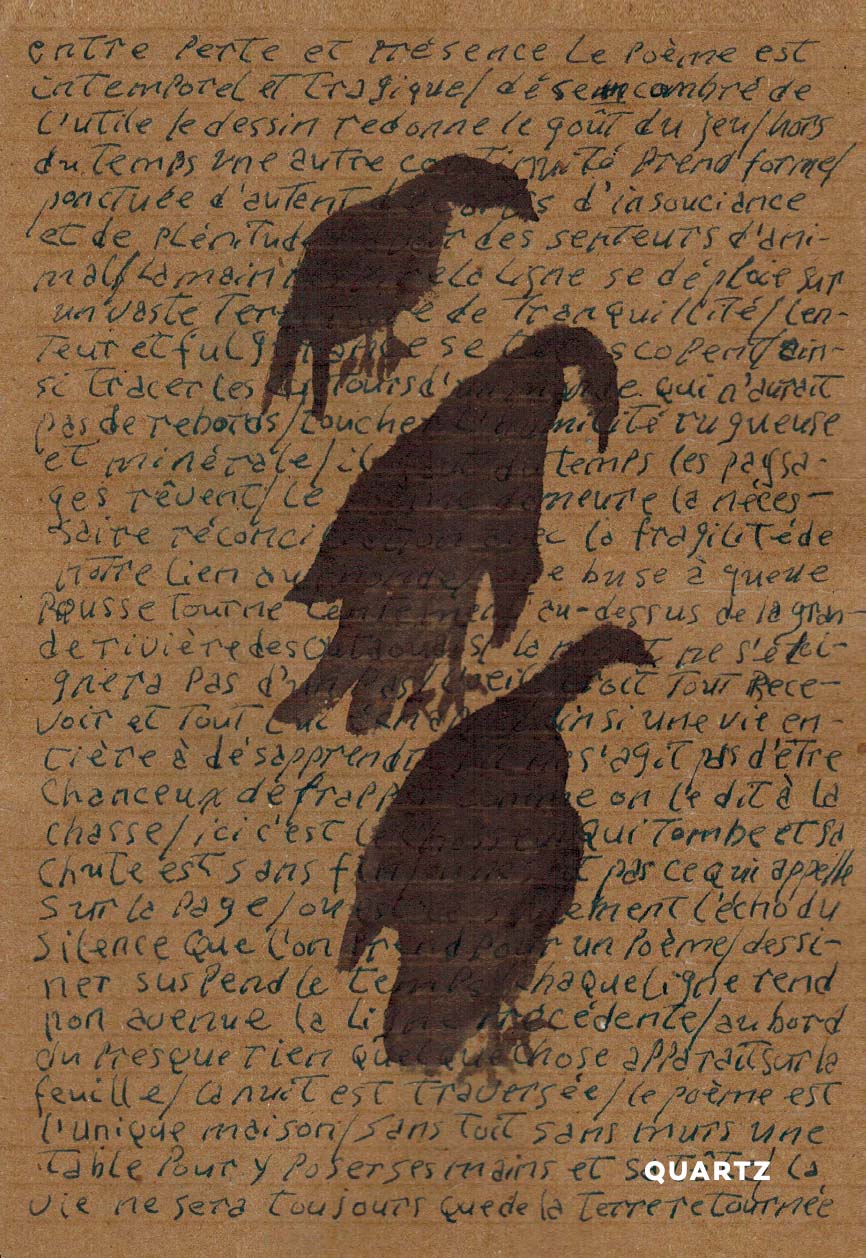 entre perte et présence le poème est
intemporel et tragique/ désencombré de
l'utile le dessin redonne le goût du jeu/hors
du temps une autre continuité prend forme/
ponctuée d'autant de d'insouciance
et de plénitude des senteurs d'ani-
mal/ la main la ligne se déploie sur
un vaste de tranquillité/ len-
teur et se télescopent/ ain-
si tracer les contours d'un qui n'aurait
pas de rebords/toucher l'humilité rugueuse
et minérale/ temps les paysa-
ges rêvent/ le demeure la néces-
saire réconciliation avec la fragilité de
notre lien au monde/ une buse à queue
rousse tourne lentement au-dessus de la gran-
de rivière des Outaouais/ la ne s'étei-
gnera pas d'un l'œil croit tout rece-
voir et tout ainsi une vie en-
tière à désapprendre il ne s'agit pas d'être
chanceux de frapper comme on le dit à la
chasse/ ici c'est le chasseur qui tombe et sa
chute est sans fin pas ce qui appelle
sur la page/ou seulement l'écho du
silence que l'on prend pour un poème/dessi-
ner suspend le temps chaque ligne rend
non avenue la ligne précédente/au bord
du presque rien quelque chose apparaît sur la
feuille/ la nuit est traversée/le poème est
l'unique maison/sans toit sans murs une
table pour y poser ses mains et sa tête/ la
QUARTZ
vie ne sera toujours que de la terre retournée